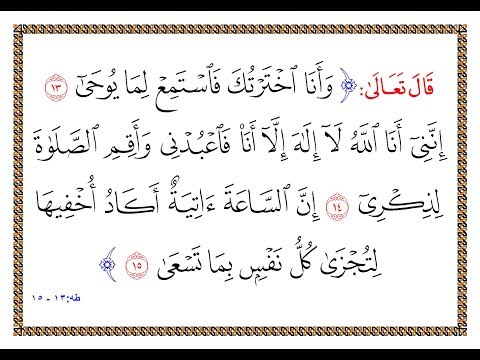 قَالَ تَعَالَىٰ: ﴿ وَأَنَا ٱخْتَرْتُكَ فَٱسْتَمِعْ لِمَا يُوحَىٰٓ ١٣
إِنَّنِىٓ أَنَا ٱللَّهُ لَآ إِلَٰهَ إِلَّآ أَنَا۠ فَٱعْبُدْنِى وَأَقِمِ ٱلصَّلَوٰةَ
لِذِكْرِىٓ ١٤ إِنَّ ٱلسَّاعَةَ ءَاتِيَةٌ أَكَادُ أُخْفِيهَا
لِتُجْزَىٰ كُلُّ نَفْسٍۭ بِمَا تَسْعَىٰ ١٥ ﴾
طه: ١٣ - ١٥